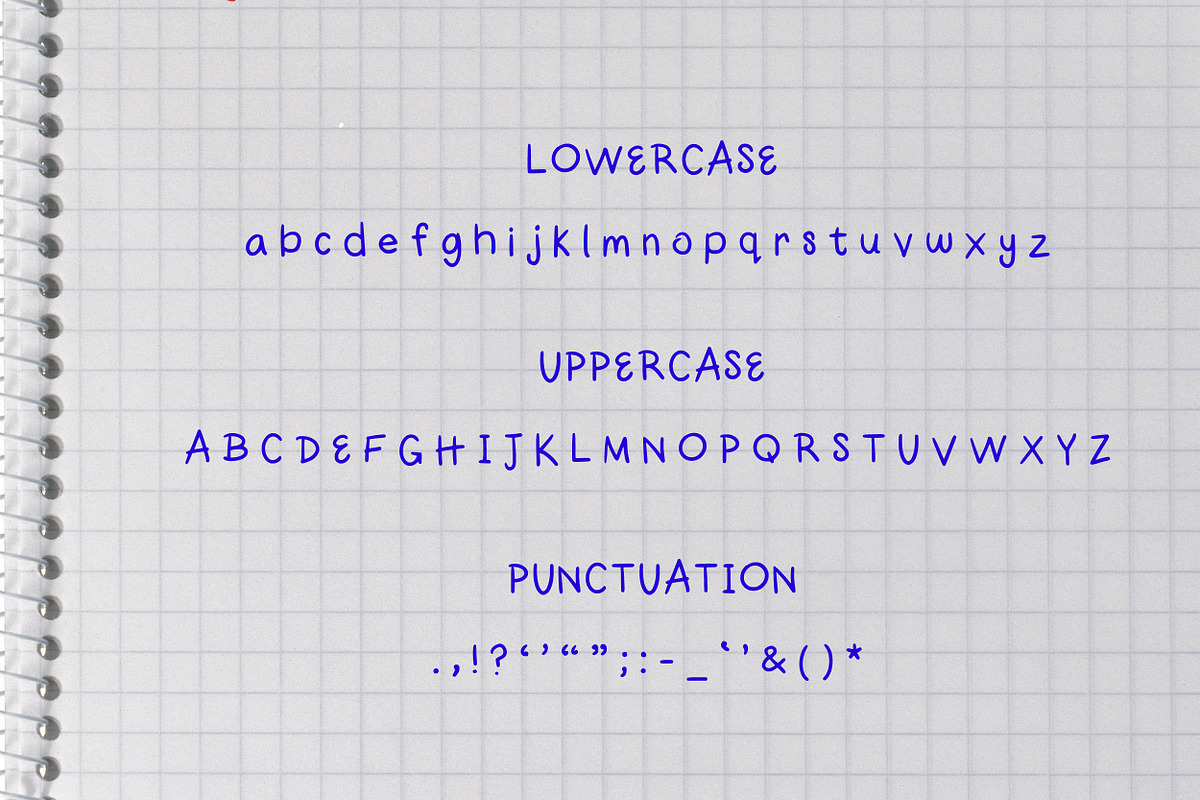 LOWERCASE
a b c d e f g h i j k l m n o p q r s t u v w x y z
UPPERCASE
A B C D E F G H I J K L M N O P Q R S T U V W X Y Z
PUNCTUATION
. , ! ? ‘ ’ “ ” ; : - _ ‛ ’ & ( ) *